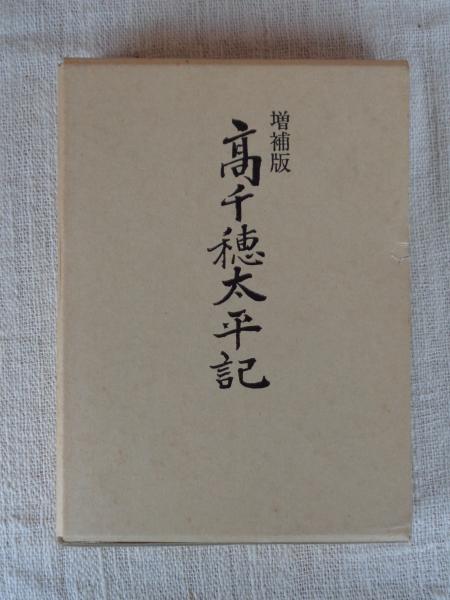 増補版
髙千穂太平記